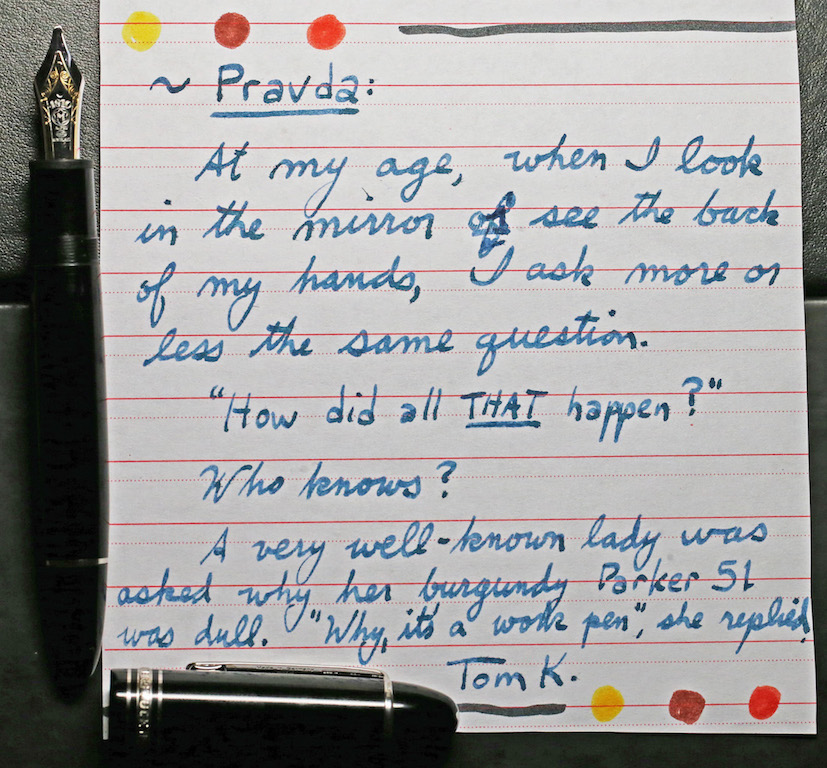 ~ Pravda:
At my age, when I look
in the mirror of see the back
of my hands, I ask more or
less the same question.
"How did all THAT happen?"
Who knows?
A very well-known lady was
asked why her burgundy Parker 51
was dull. "Why, it's a work pen", she replied.
Tom K.